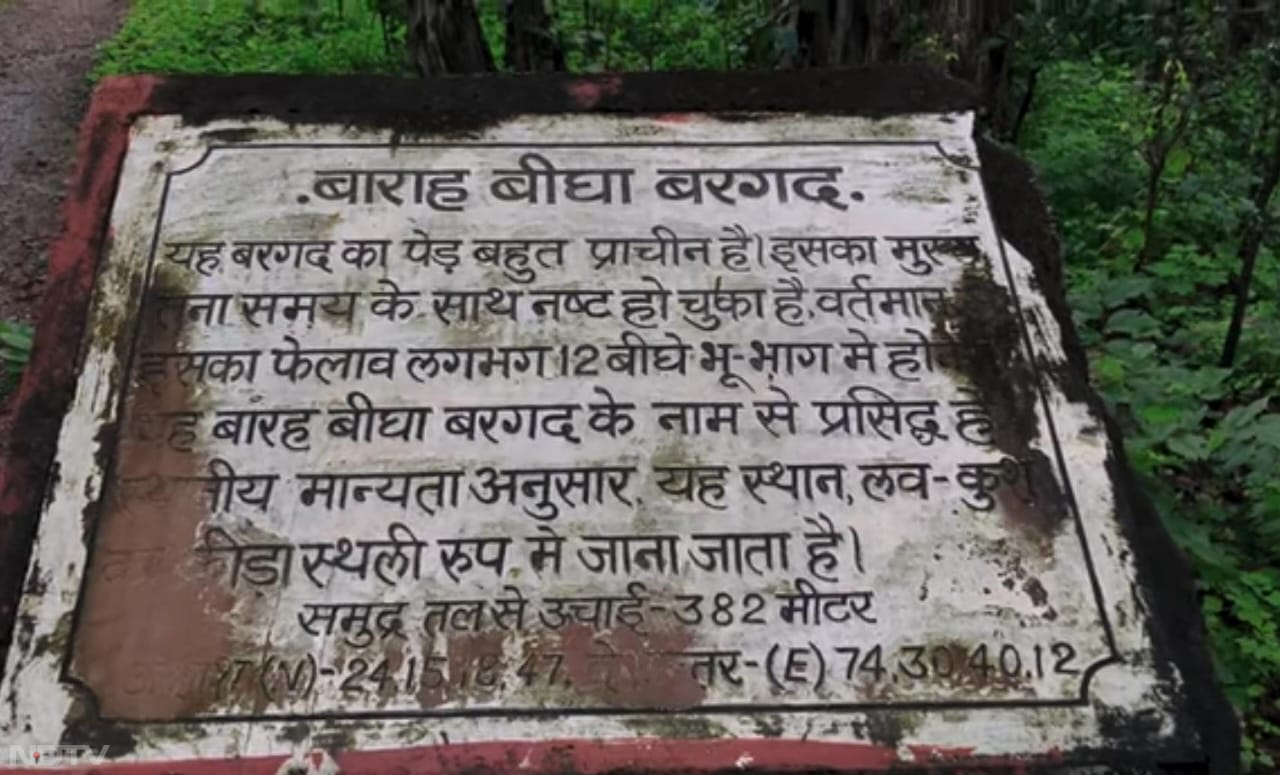 .बाराह बीघा बरगद.
यह बरगद का पेड़ बहुत प्राचीन है।इसका
समय के साथ नष्ट हो चुका है,वर्तमान
इसका फेलाव लगभग 12 बीघे भू-भाग मे
बारह बीघा बरगद के नाम से प्रसिद्ध है
मान्यता अनुसार, यह स्थान, लव-कुश
स्थली रुप मे जाना जाता है।
समुद्र तल से उचाई-382 मीटर
(N)-24.15.18.47. -(E) 74.30.40.12
NDTV